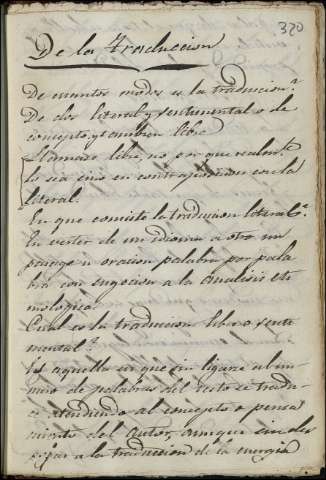 320
De la traduccion
De cuantos modos es la traducion?
De dos literal y sentimental o de
concepto, y tambien libre
Llamase libre, no por que realm.te
lo sea sino en contraposicion con la
literal.
En que consiste la traducion literal?
En verter de un idioma a otro un
pasage u oracion palabra por pala
bra con sugecion a la analisis eti
mologica.
Cual es la traducion libre o senti
mental?
Es aquella en que sin ligarse al nu
mero de palabras del testo se tradu
ce atendiendo al concepto o pensa
miento del autor, aunque sin des
pojar a la traduccion de la energia